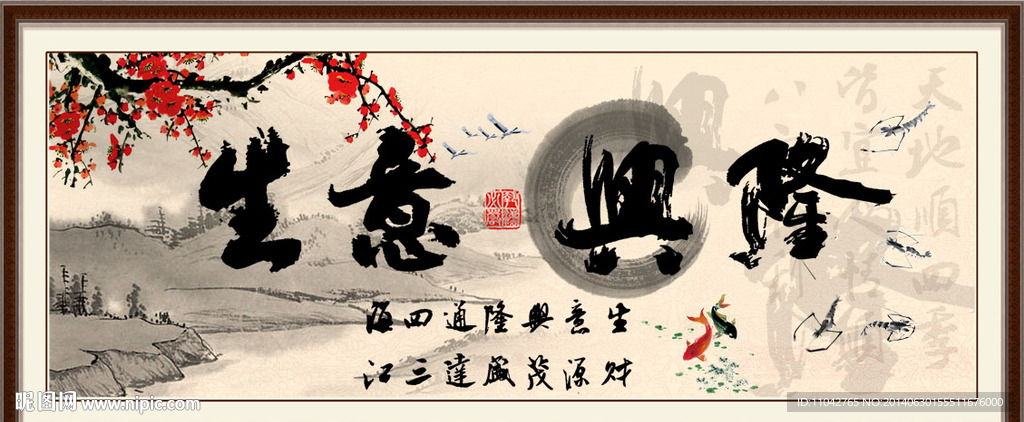 生意興隆
生意興隆通四海
财源茂盛達三江
昵图网 www.nipic.com
ID:11042765 NO:20140630155511676000